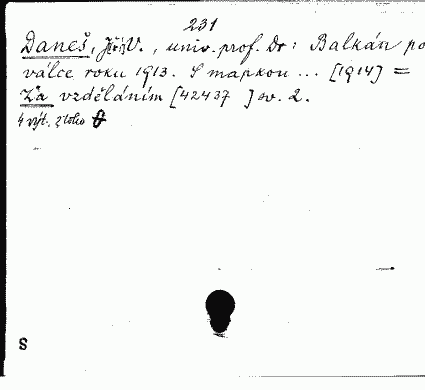 231
Daneš, Jiří V., univ. prof. Dr: Balkán po
válce roku 1913. S mapkou ... [1914] =
Za vzděláním [42437 ] sv. 2.
4 výt. z toho
S